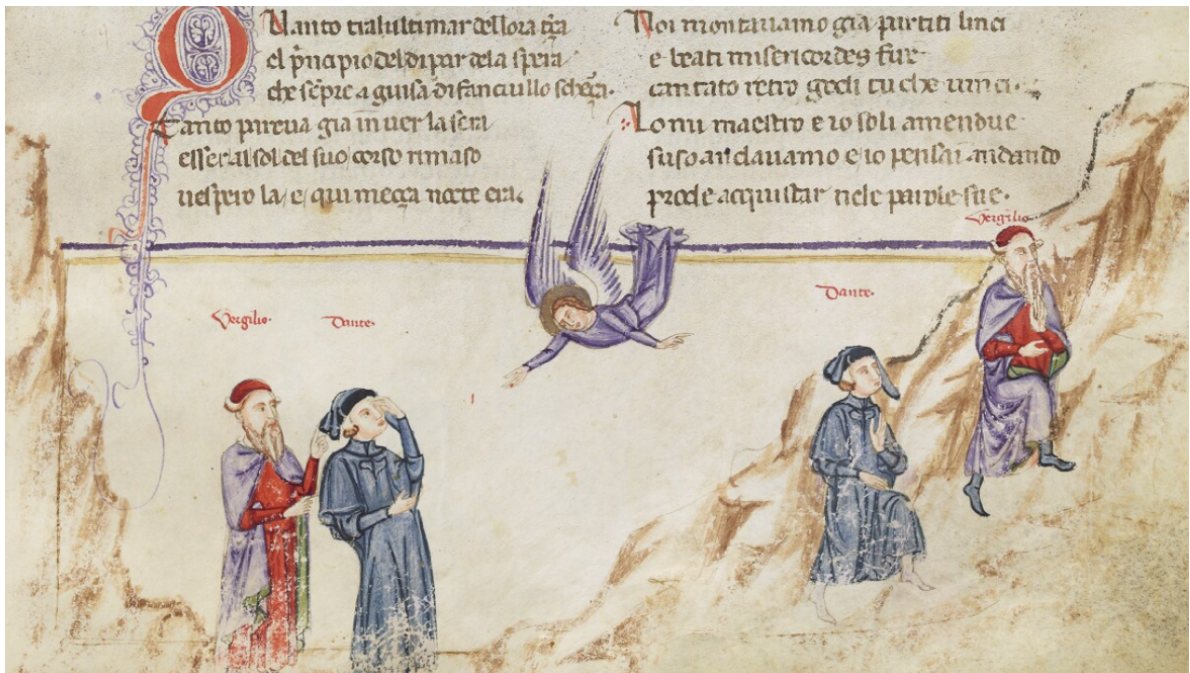 Quanto tralultimar dellora tƺa
el p̄ncipio del di par dela spera
che sēpre a guisa di fanciullo scheȓça.
Tanto pareua gia inuer la sera
esser al sol del suo corso rimaso
uespero la / e / qui meçça nocte era.
Noi montauamo gia partiti linci
e beati misericordes fue
cantato retro godi tu che uinci.
Lo mi maestro e io soli amendue
suso andauamo e io pensai andando
prode acquistar nele parole sue.
Vergilio
Dante.
Vergilio.
Dante.